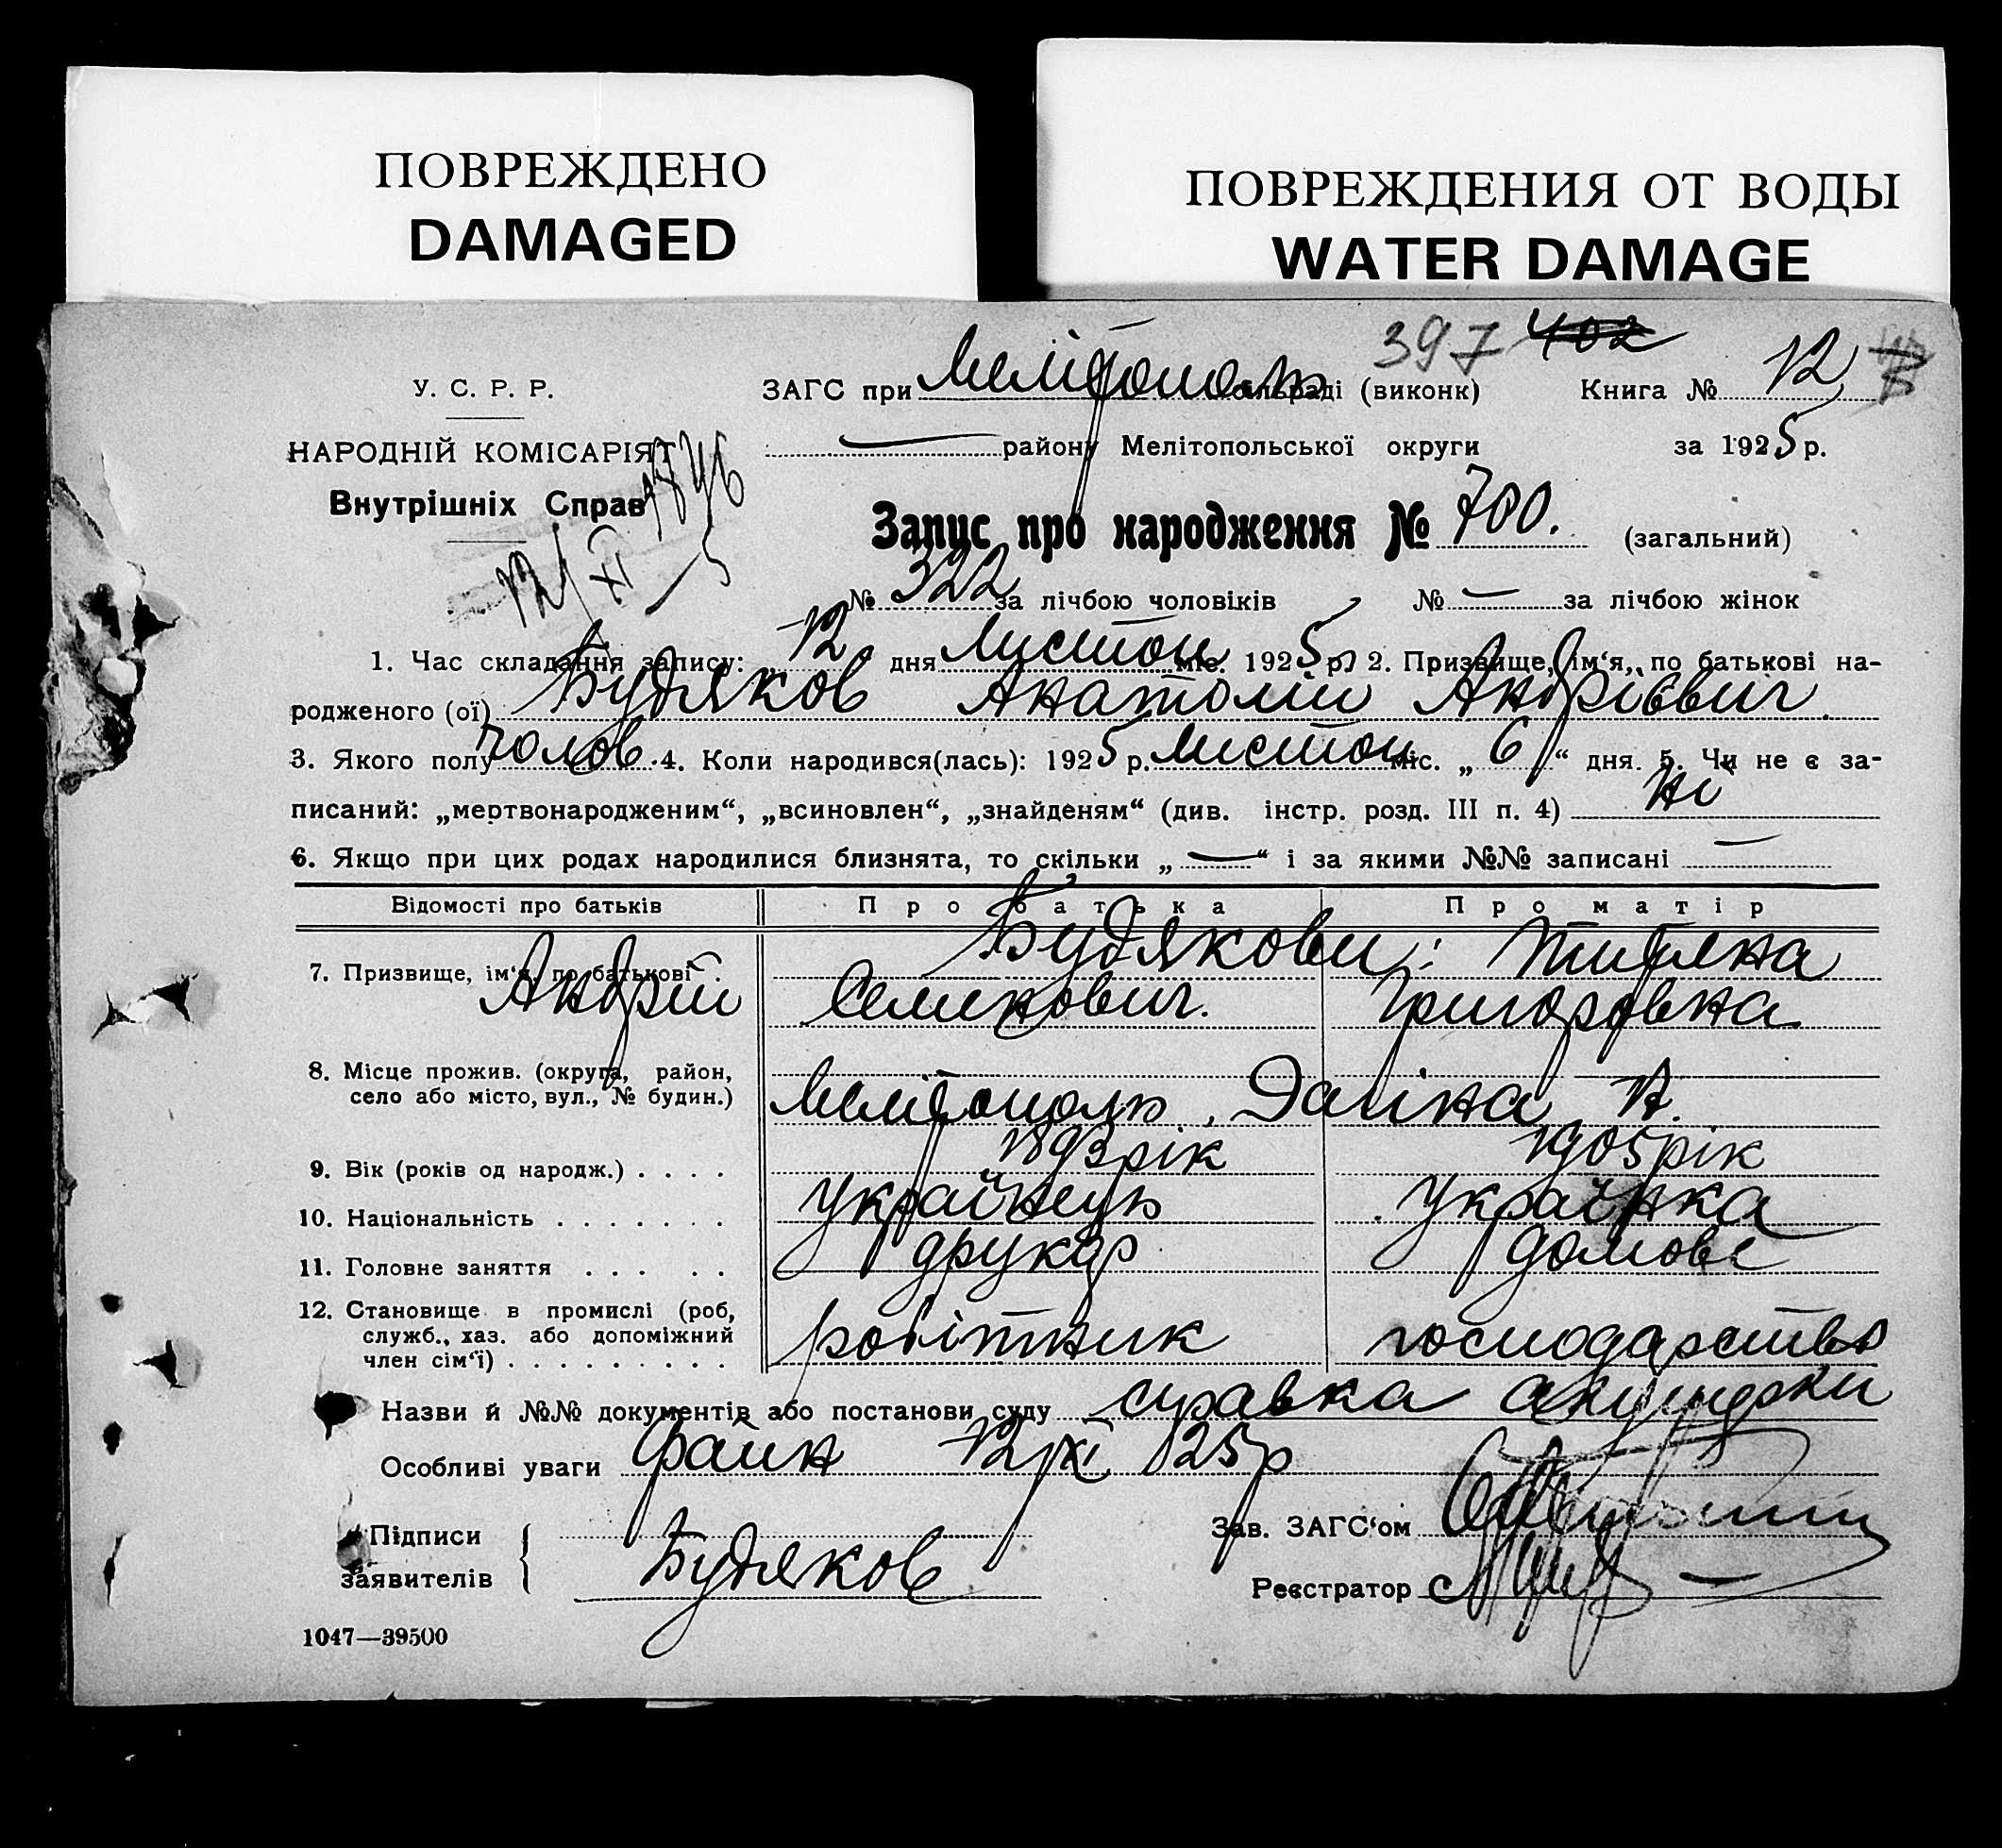 ПОВРЕЖДЕНО
DAMAGED
ПОВРЕЖДЕНИЯ ОТ ВОДЫ
WATER DAMAGE
397 402
У. С. Р. Р.
ЗАГС при Мелітополь сільраді (виконк) Книга № 12
НАРОДНІЙ КОМІСАРІЯТ
— району Мелітопольської округи за 1925 р.
Внутрішніх Справ
1846
12/XI — 5
Запис про народження № 780. (загальний)
№ 322 за лічбою чоловіків № — за лічбою жінок
1. Час складання запису: 12 дня Листоп міс. 1925 р. 2. Призвище, ім'я, по батькові на-
родженого (ої) Будяков Анатолій Андрієвич
3. Якого полу чолов. 4. Коли народився(лась): 1925 р. Листоп міс. „ 6 “ дня. 5. Чи не є за-
писаний: „мертвонародженим“, „всиновлен“, „знайденям“ (див. інстр. розд. III п. 4) Ні
6. Якщо при цих родах народилися близнята, то скільки „ — “ і за якими №№ записані —
Відомості про батьків Про батька Про матір
7. Призвище, ім'я, по батькові . Будякови: Титяна
Андрій Семенович. Григоровна
8. Місце прожив. (округа, район,
село або місто, вул., № будин.) Мелітополь,
9. Вік (років од народж.) . . . . 1893 рік 1905 рік
10. Національність . . . . . . . Українець Українка
11. Головне заняття . . . . . друкар домове
12. Становище в промислі (роб,
служб., хаз. або допоміжний
член сім'ї) . . . . . . . . . робітник господарство
Назви й №№ документів або постанови суду справка акушерки
Особливі уваги Файн 12/XI 125р
Підписи
заявителів { Будяков
Зав. ЗАГС'ом
Реєстратор
1047—39500